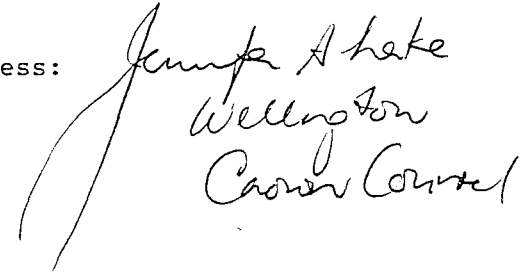 ess: Jennifer A Lake
Wellington
Crown Counsel